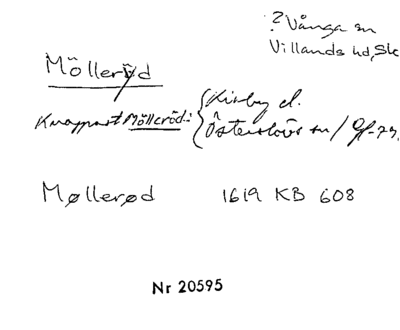 ? Vånga sn
Villands hd, Sk
Mölleröd
Knappast Mölleröd:
Kiaby el.
Österslövs sn /
Møllerød 1619 KB 608
Nr 20595